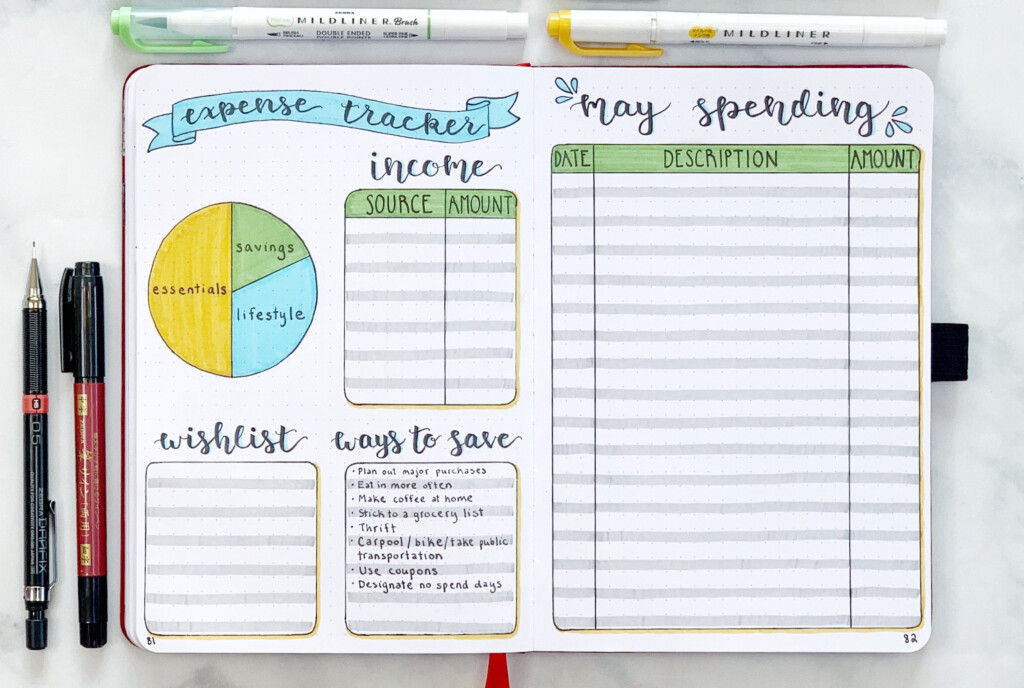 ZEBRA
MILDLINER Brush
BRUSH
DOUBLE ENDED
SUPER FINE
MILDLINER
expense tracker
income
SOURCE AMOUNT
savings
essentials
lifestyle
wishlist
ways to save
· Plan out major purchases
· Eat in more often
· Make coffee at home
· Stick to a grocery list
· Thrift
· Carpool/bike/take public
transportation
· Use coupons
· Designate no spend days
81
may spending
DATE DESCRIPTION AMOUNT
82
05
ZEBRA DRAFIX